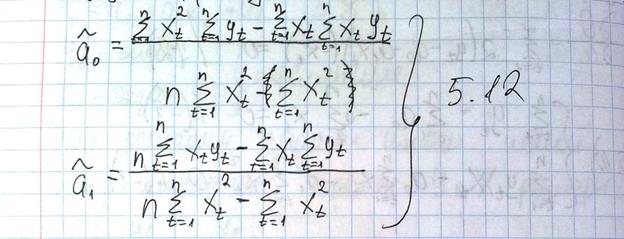 ã₀ = (∑ₜ₌₁ⁿ xₜ² ∑ₜ₌₁ⁿ yₜ − ∑ₜ₌₁ⁿ xₜ ∑ₜ₌₁ⁿ xₜ yₜ) / (n ∑ₜ₌₁ⁿ xₜ² − {∑ₜ₌₁ⁿ xₜ²})
ã₁ = (n ∑ₜ₌₁ⁿ xₜyₜ − ∑ₜ₌₁ⁿ xₜ ∑ₜ₌₁ⁿ yₜ) / (n ∑ₜ₌₁ⁿ xₜ² − ∑ₜ₌₁ⁿ xₜ²)
} 5.12